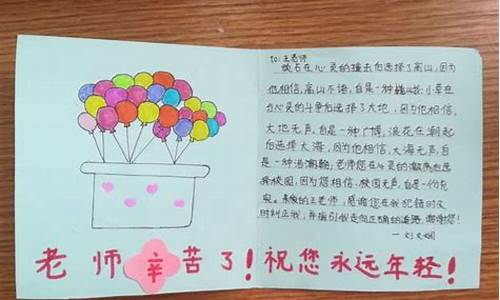 to: 王老师
顽石在心灵的撞击后选择了高山,因为
他相信,高山不语,自是一种巍峨;小草在
心灵的斗争后选择了大地,因为他相信,
大地无声,自是一种广博;浪花在潮起
后选择大海,因为他相信,大海无声,自
是一种浩瀚;老师您在心灵的激荡后选
择校园,因为您相信,校园无声,自是一种充
实。亲爱的王老师,感谢您在我犯错时及
时纠正我,并指引我走向正确的道路,谢谢您!
老师辛苦了!祝您永远年轻!